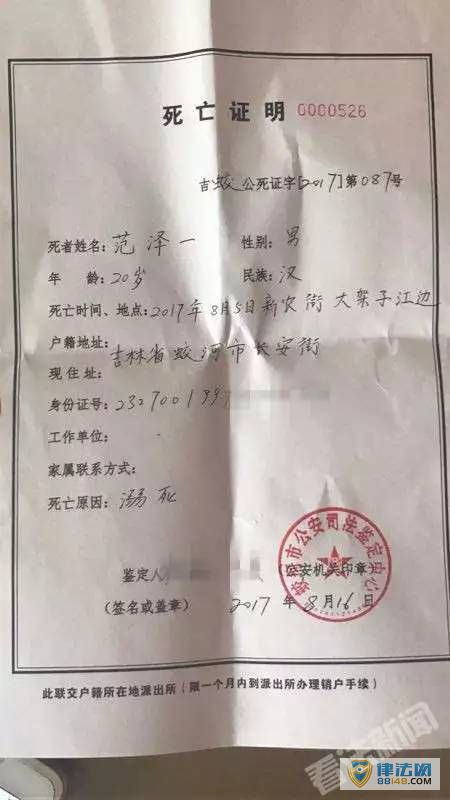 死亡证明 0000526
吉蛟公死证字[2017]第087号
死者姓名：范泽一 性别：男
年 龄：20岁 民族：汉
死亡时间、地点：2017年8月5日新农街大架子江边
户籍地址：
吉林省蛟河市长安街
现住址：
身份证号：2327001997
工作单位：
家属联系方式：
死亡原因：溺死
鉴定人 （公安机关印章）
（签名或盖章） 2017年8月16日
蛟河市公安司法鉴定中心
此联交户籍所在地派出所（限一个月内到派出所办理销户手续）
看法新闻
律法网
88148.com